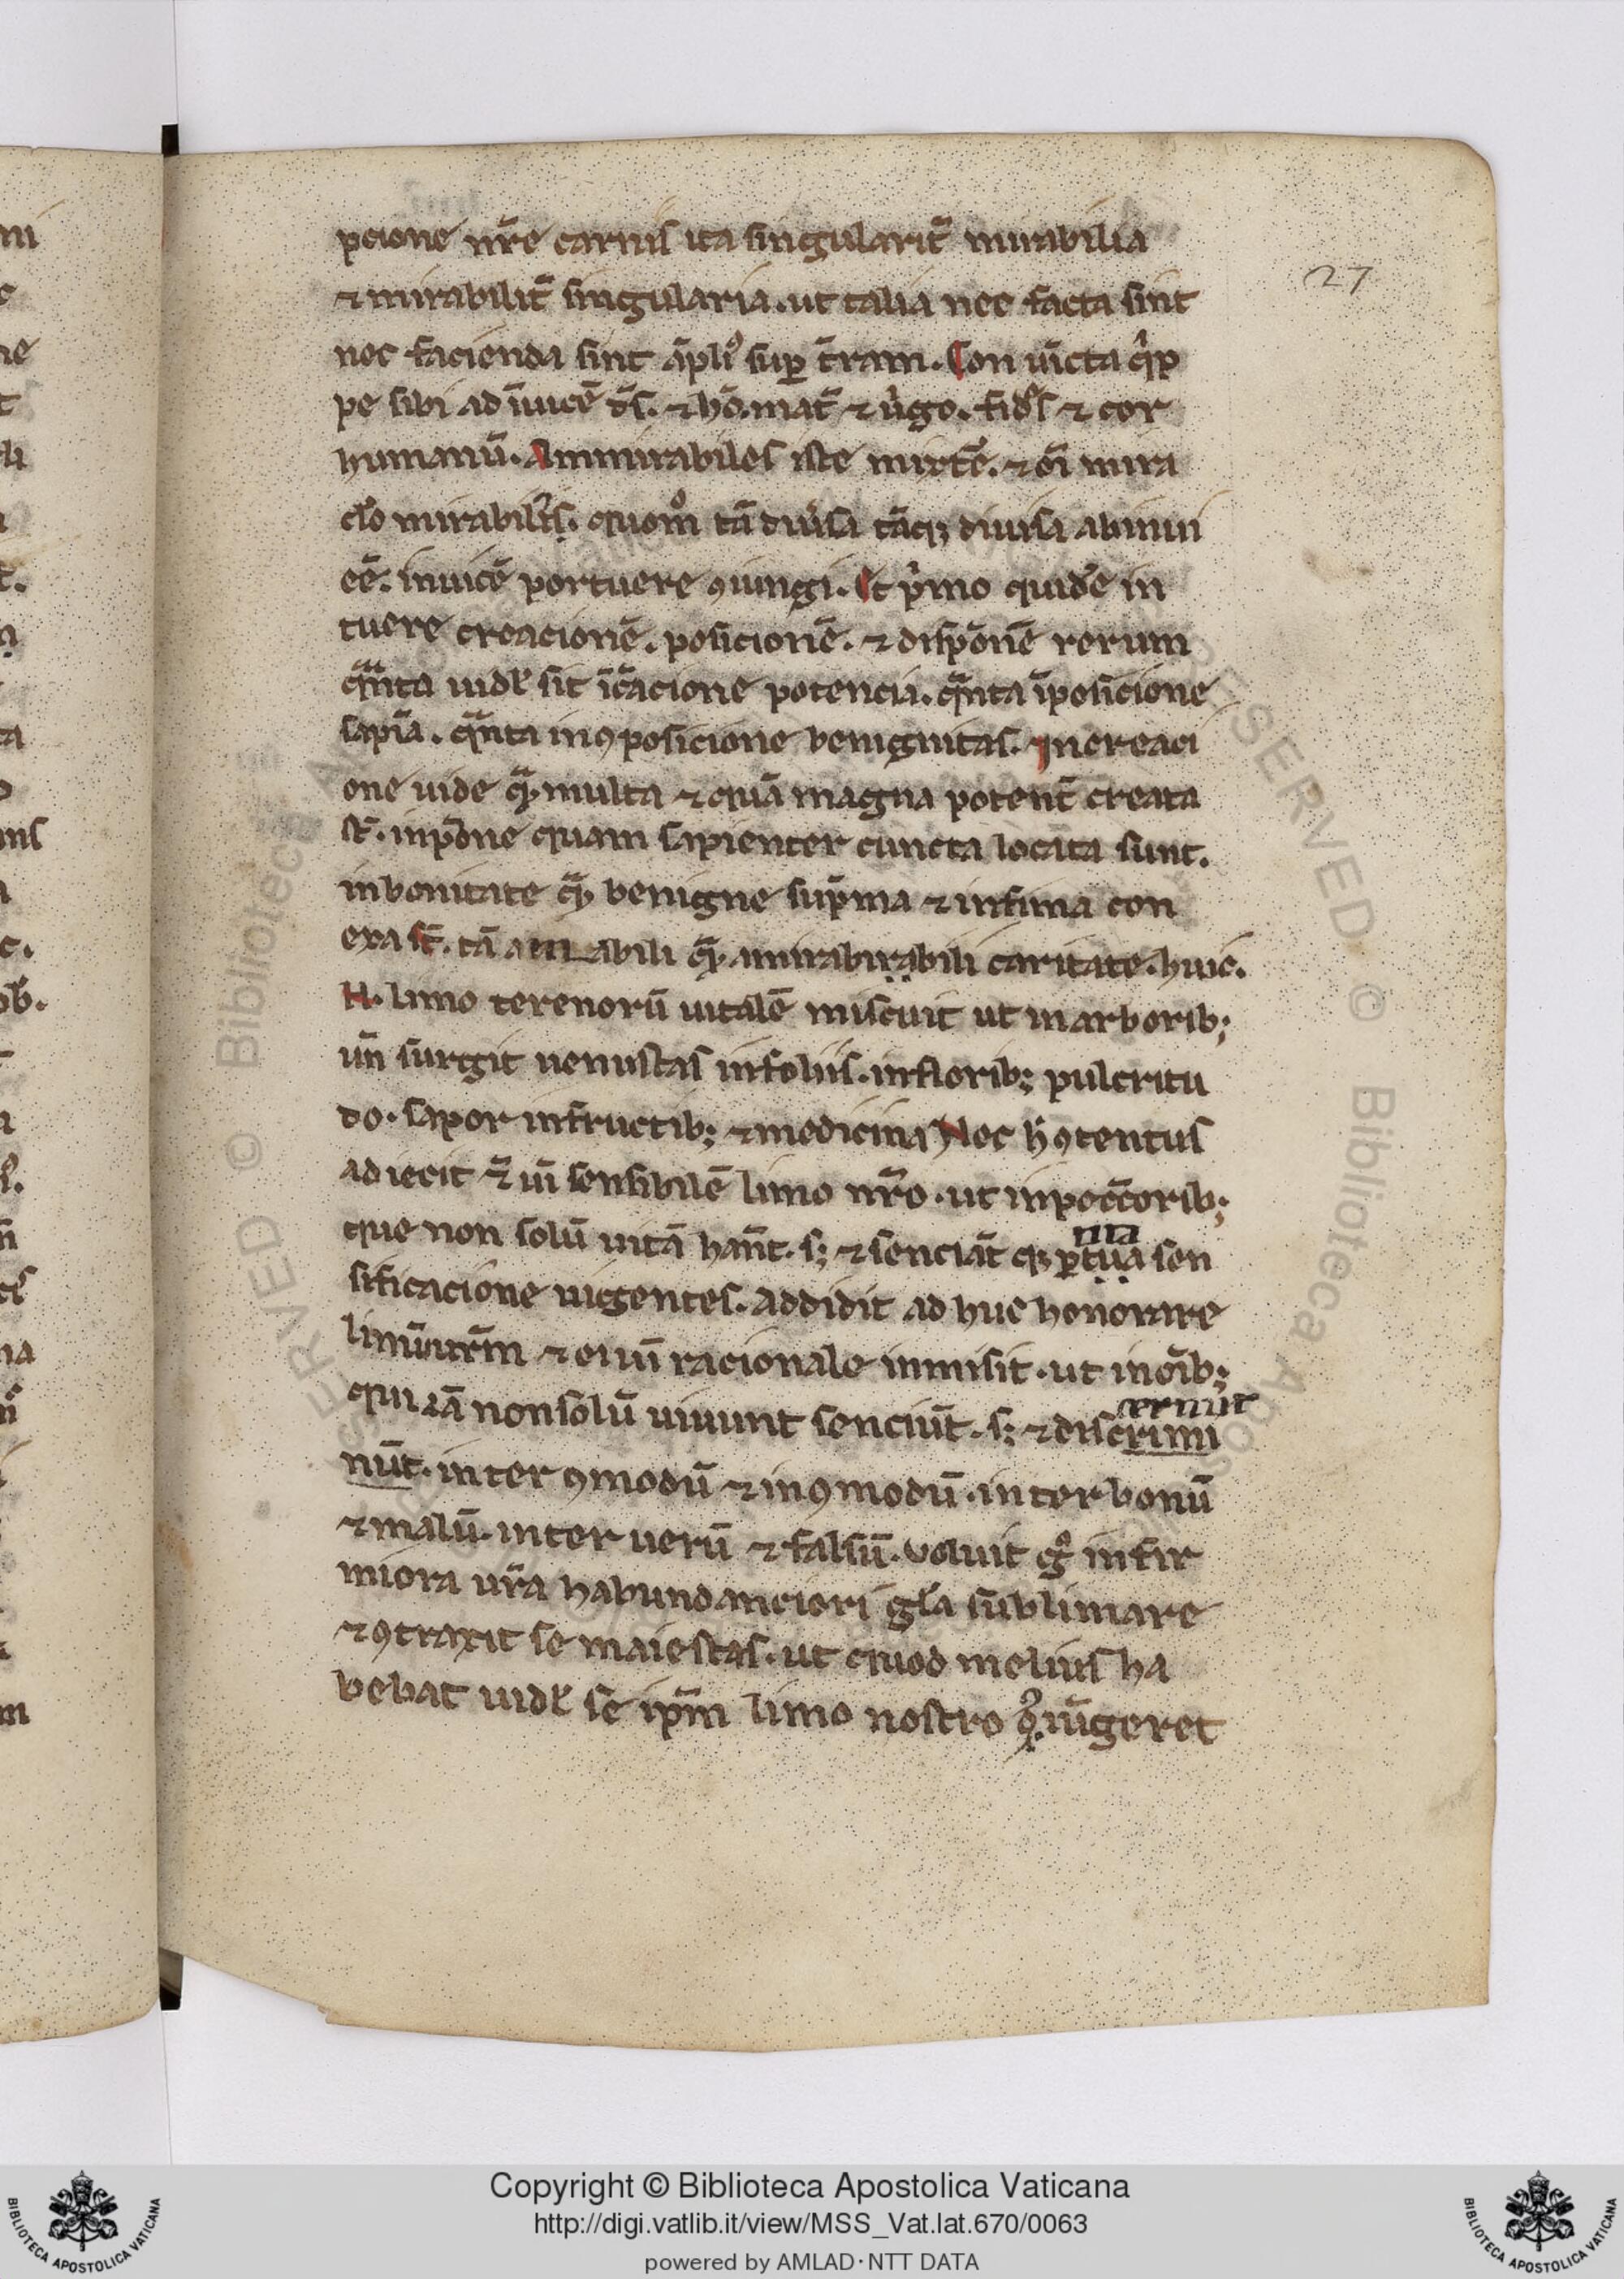 pcione nr̄e carnis ita singularit̄ mirabilia
27
⁊ mirabilit̄ singularia. ut talia nec facta sint
nec facienda sint āpliꝰ suꝑ t̄ram. Con iūcta qͥp
pe sibi ad īuicē d̄s. ⁊ hō. mat̄ ⁊ uͥgo. fidēs ⁊ cor
humanū. Ammirabiles iste mixtē. ⁊ oī mira
cl̄o mirabilr̄s. quomͦ tā diūsa tāqꝫ diuisa abinui
cē. inuicē portuere ꝯiungi. Et pͥmo quidē in
tuere creacionē. posicionē. ⁊ disp̄onē rerum
qͣnta uidꝫ sit ic̄acione potencia. qͣnta īposicione
sapīa. qͣnta inꝯposicione benignitas. Increaci
one uide qͣꝫ multa ⁊ quā magna potent̄ creata
st̄. inp̄one quam sapienter cuncta locata sunt.
inbonitate qͣꝫ benigne sup̄ma ⁊ infima con
exa st̄. tā amabili qͣꝫ amirabirabili caritate. huic.
N. limo terenorū uitalē miscuit ut inarboribꝫ
un̄ surgit uenustas infoliis. infloribꝫ pulcritu
do. sapor infructibꝫ ⁊ medicina Nec h̄ ꝯtentus
adiecit ⁊̄ uī sensibilē limo nr̄o. ut inpeccoribꝫ
que non solū uitā hn̄t. sꝫ ⁊ senciāt qꝫ ꝑtita sen
na
sificacione uigentes. addidit ad huc honorare
limū nr̄m ⁊ ei uī racionale inmisit. ut inoībꝫ
qui iā nonsolū uiuunt senciūt. sꝫ ⁊ discrimi
cernūt
nūt. inter ꝯmodū ⁊ inꝯmodū. inter bonū
⁊ malū. inter uerū ⁊ falsū. uoluit gͦ infir
miora nr̄a habundanciori gl̄a sublimare
⁊ ꝯtraxit se maiestas. ut quod melius ha
bebat uidꝫ se ip̄m limo nostro ꝯiūgeret
Copyright © Biblioteca Apostolica Vaticana
http://digi.vatlib.it/view/MSS_Vat.lat.670/0063
powered by AMLAD·NTT DATA
BIBLIOTECA APOSTOLICA VATICANA
BIBLIOTECA APOSTOLICA VATICANA